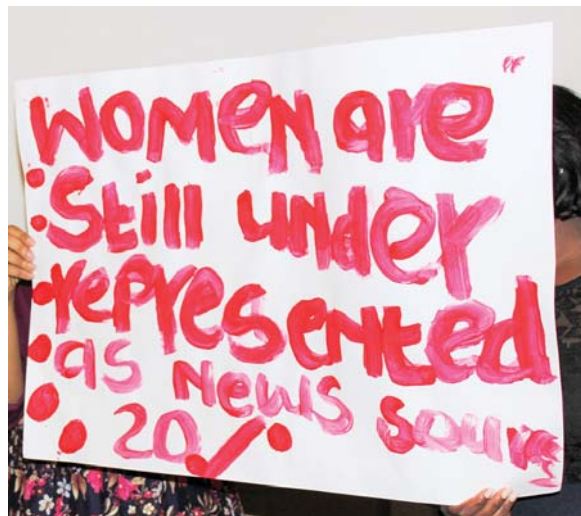 Women are
Still under
represented
as News
20%